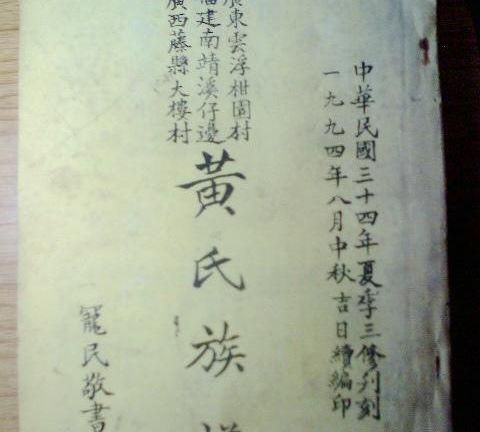 中華民國三十四年夏季三修刋刻
一九九四年八月中秋吉日續編印
廣東雲浮柑園村
福建南靖溪仔邊
廣西藤縣大樓村
黃氏族
寵民敬書